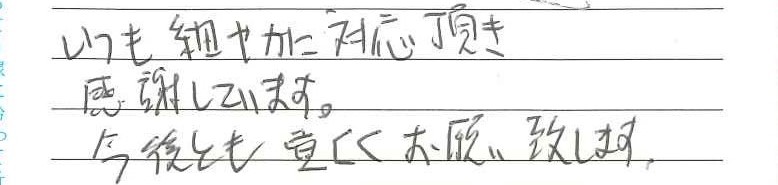 いつも細やかに対応頂き
感謝しています。
今後とも宜しくお願い致します。